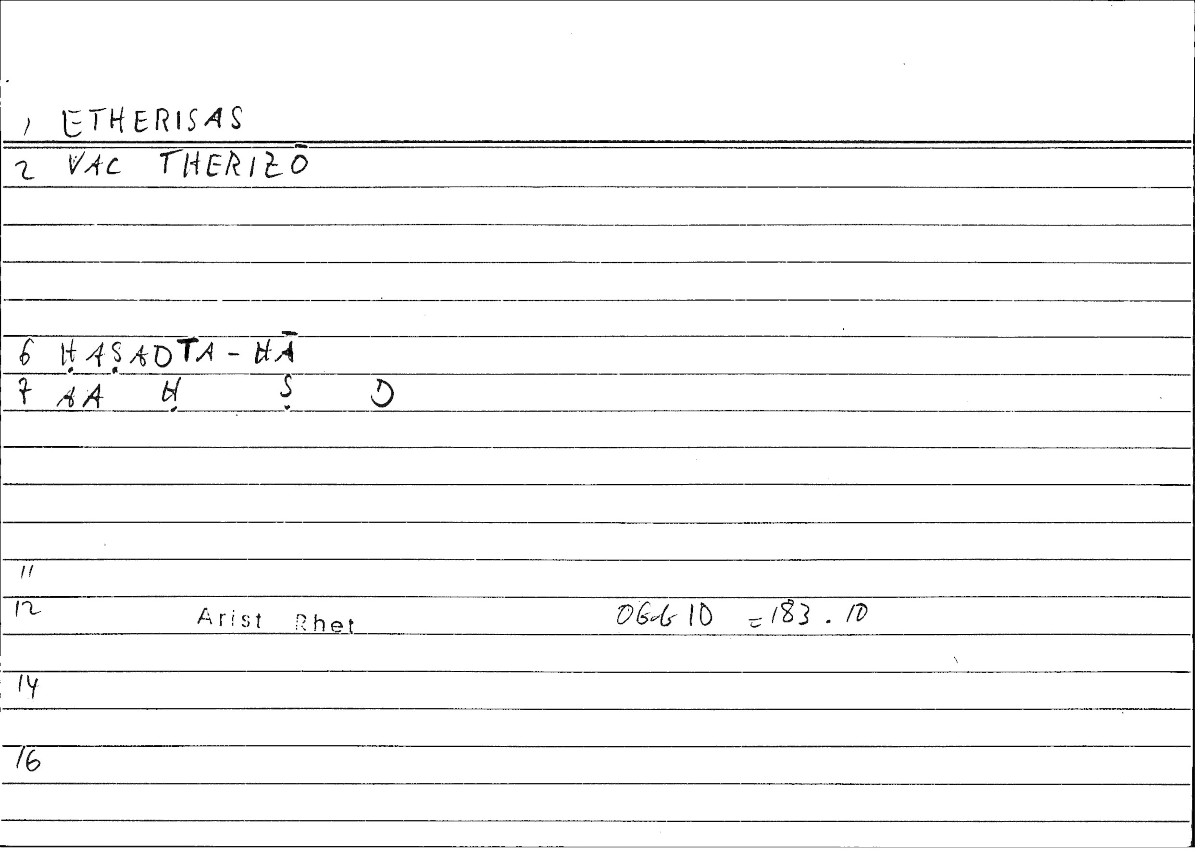 1 ETHERISAS
2 VAC THERIZŌ
6 ḤAṢADTA-HĀ
7 AA Ḥ Ṣ D
11
12 Arist Rhet = 183.10
14
16